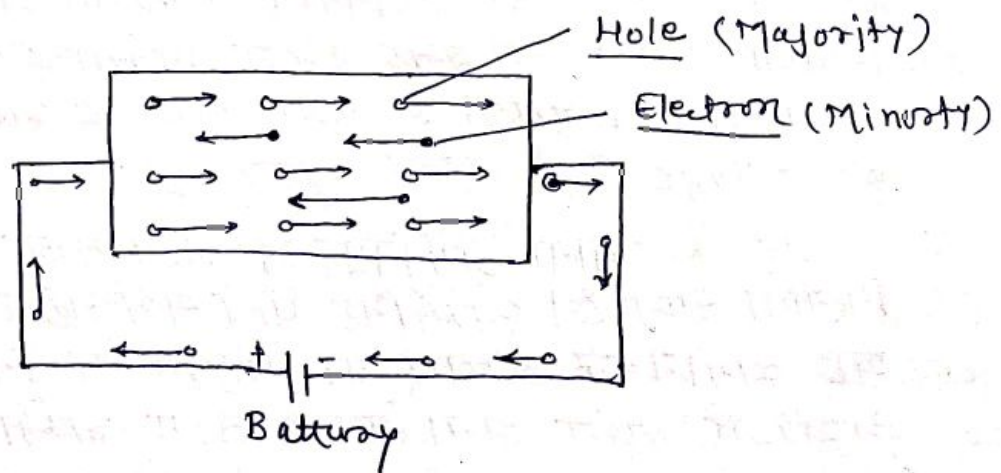 Hole (Majority)
Electron (Minorty)
+ -
Battury